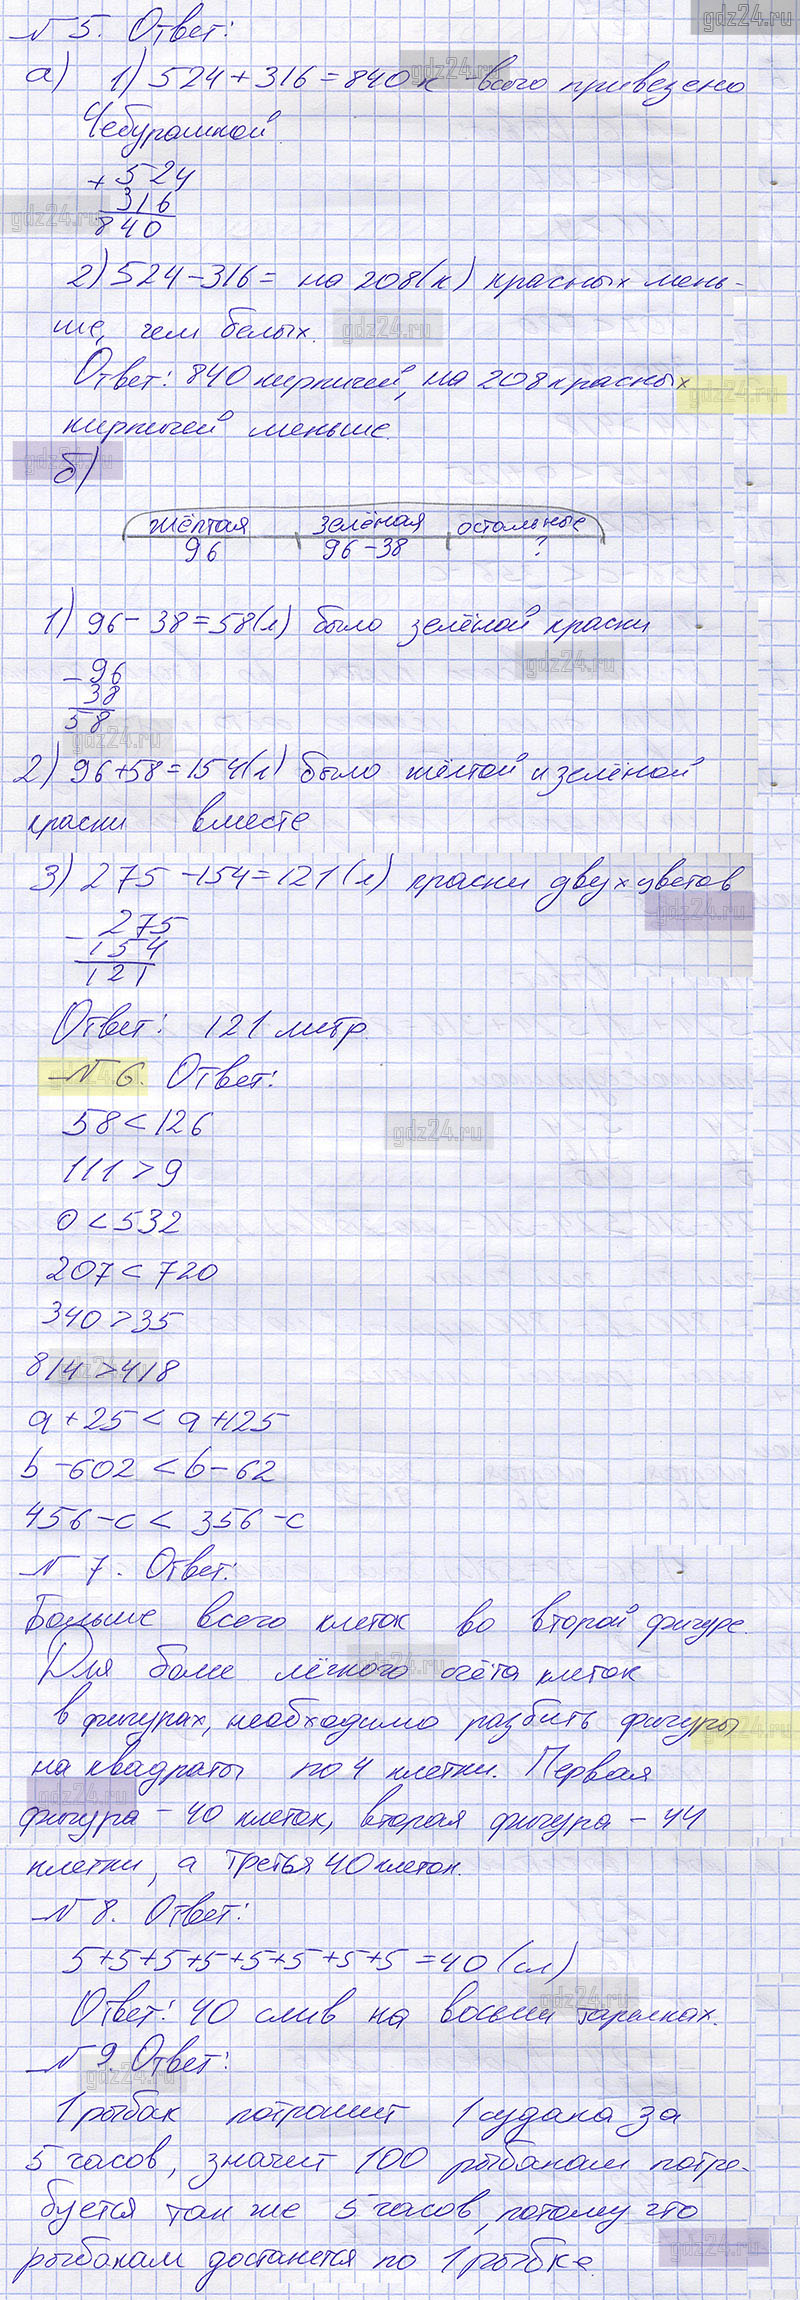 № 5. Ответ:
gdz24.ru
а) 1) 524 + 316 = 840 к - всего привезено
gdz24.ru
Чебурашкой.
+ 524
316
gdz24.ru
840
2) 524 - 316 = на 208 (к) красных мень-
ше, чем белых.
gdz24.ru
Ответ: 840 кирпичей, на 208 красных
gdz24.ru
кирпичей меньше.
gdz24.ru
б)
жёлтая зелёная остальные
96 96 - 38 ?
1) 96 - 38 = 58 (л) было зелёной краски
gdz24.ru
- 96
38
58
gdz24.ru
2) 96 + 58 = 154 (л) было жёлтой и зелёной
краски вместе
3) 275 - 154 = 121 (л) краски двух цветов
gdz24.ru
- 275
154
121
Ответ: 121 литр.
№ 6. Ответ:
58 < 126
gdz24.ru
111 > 9
0 < 532
207 < 720
340 > 35
814 > 418
gdz24.ru
a + 25 < a + 125
b - 602 < b - 62
456 - c < 356 - c
№ 7. Ответ:
Больше всего клеток во второй фигуре.
Для более лёгкого счёта клеток
gdz24.ru
в фигурах, необходимо разбить фигуры
gdz24.ru
на квадраты по 4 клетки. Первая
gdz24.ru
фигура - 40 клеток, вторая фигура - 44
клетки, а третья 40 клеток.
№ 8. Ответ:
5+5+5+5+5+5+5+5 = 40 (сл)
gdz24.ru
Ответ: 40 слив на восьми тарелках.
№ 9. Ответ:
gdz24.ru
1 рыбак потрошит 1 судака за
5 часов, значит 100 рыбакам потре-
буется так же 5 часов, потому что
gdz24.ru
рыбакам достанется по 1 рыбке.